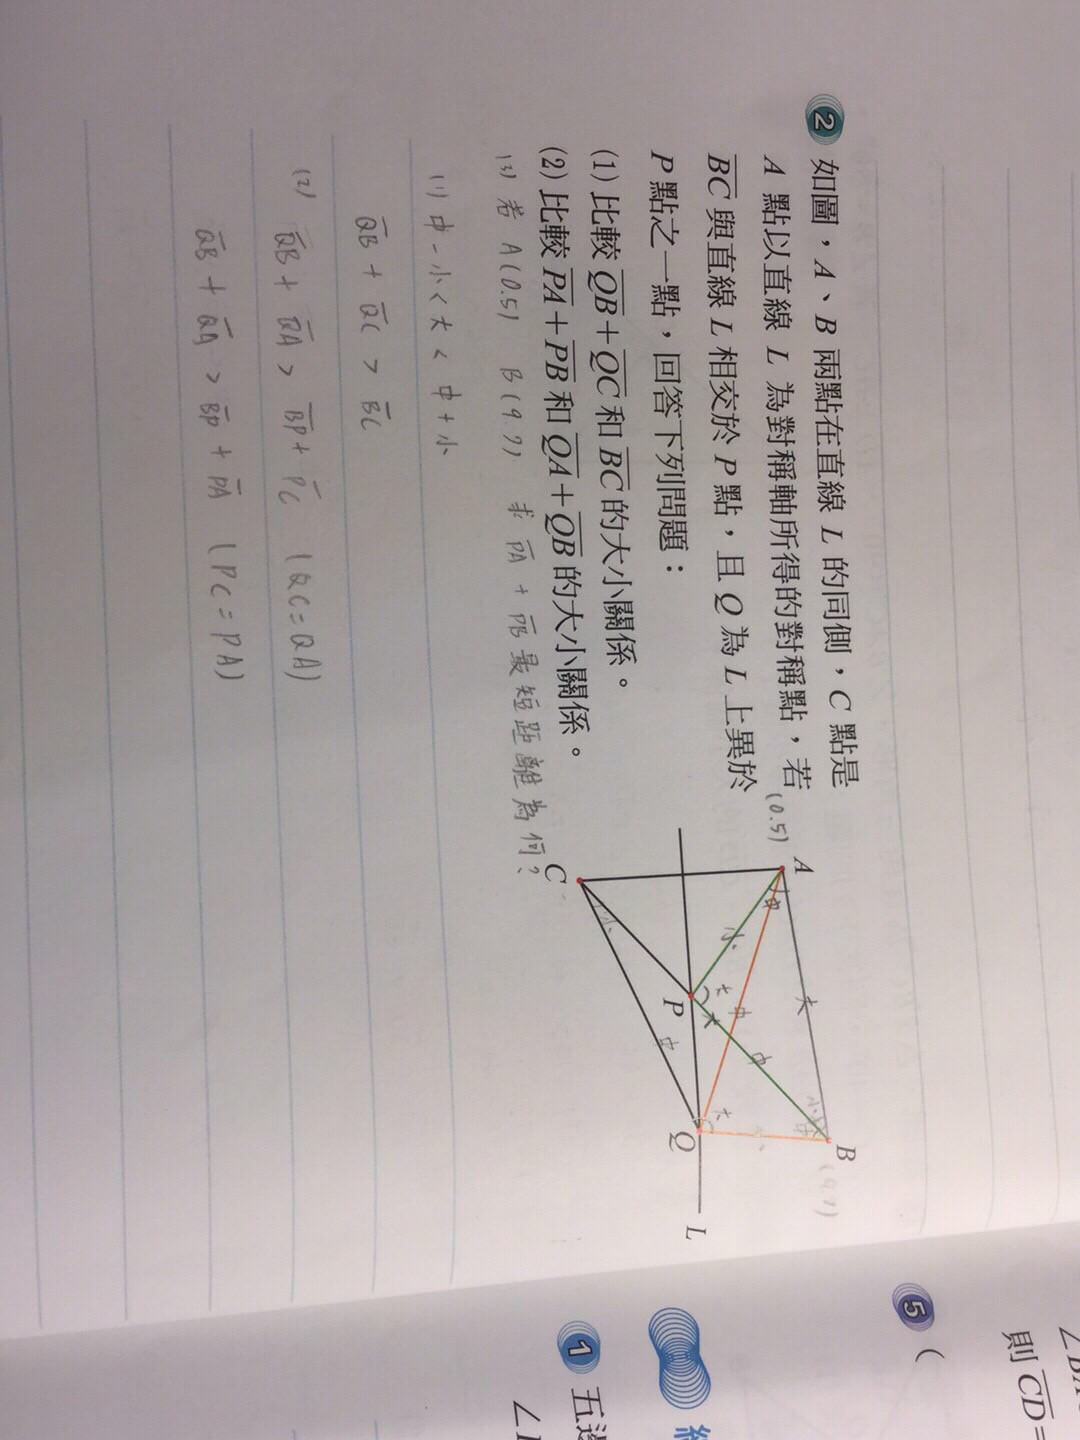 2 如圖,A、B 兩點在直線 L 的同側,C 點是
A 點以直線 L 為對稱軸所得的對稱點,若
BC 與直線 L 相交於 P 點,且 Q 為 L 上異於
P 點之一點,回答下列問題:
(1) 比較 QB+QC 和 BC 的大小關係。
(2) 比較 PA+PB 和 QA+QB 的大小關係。
(3) 若 A(0.5) B(9.7) 求 PA + PB 最短距離為何?
(1) 中-小<大<中+小
QB + QC > BC
(2) QB + QA > BP + PC (QC=QA)
QB + QA > BP + PA (PC=PA)
(0.5)
A
中
小
大
大
中
中
B
小
大
C
小
P
中
Q
L
5 (
則 CD=
1 五邊